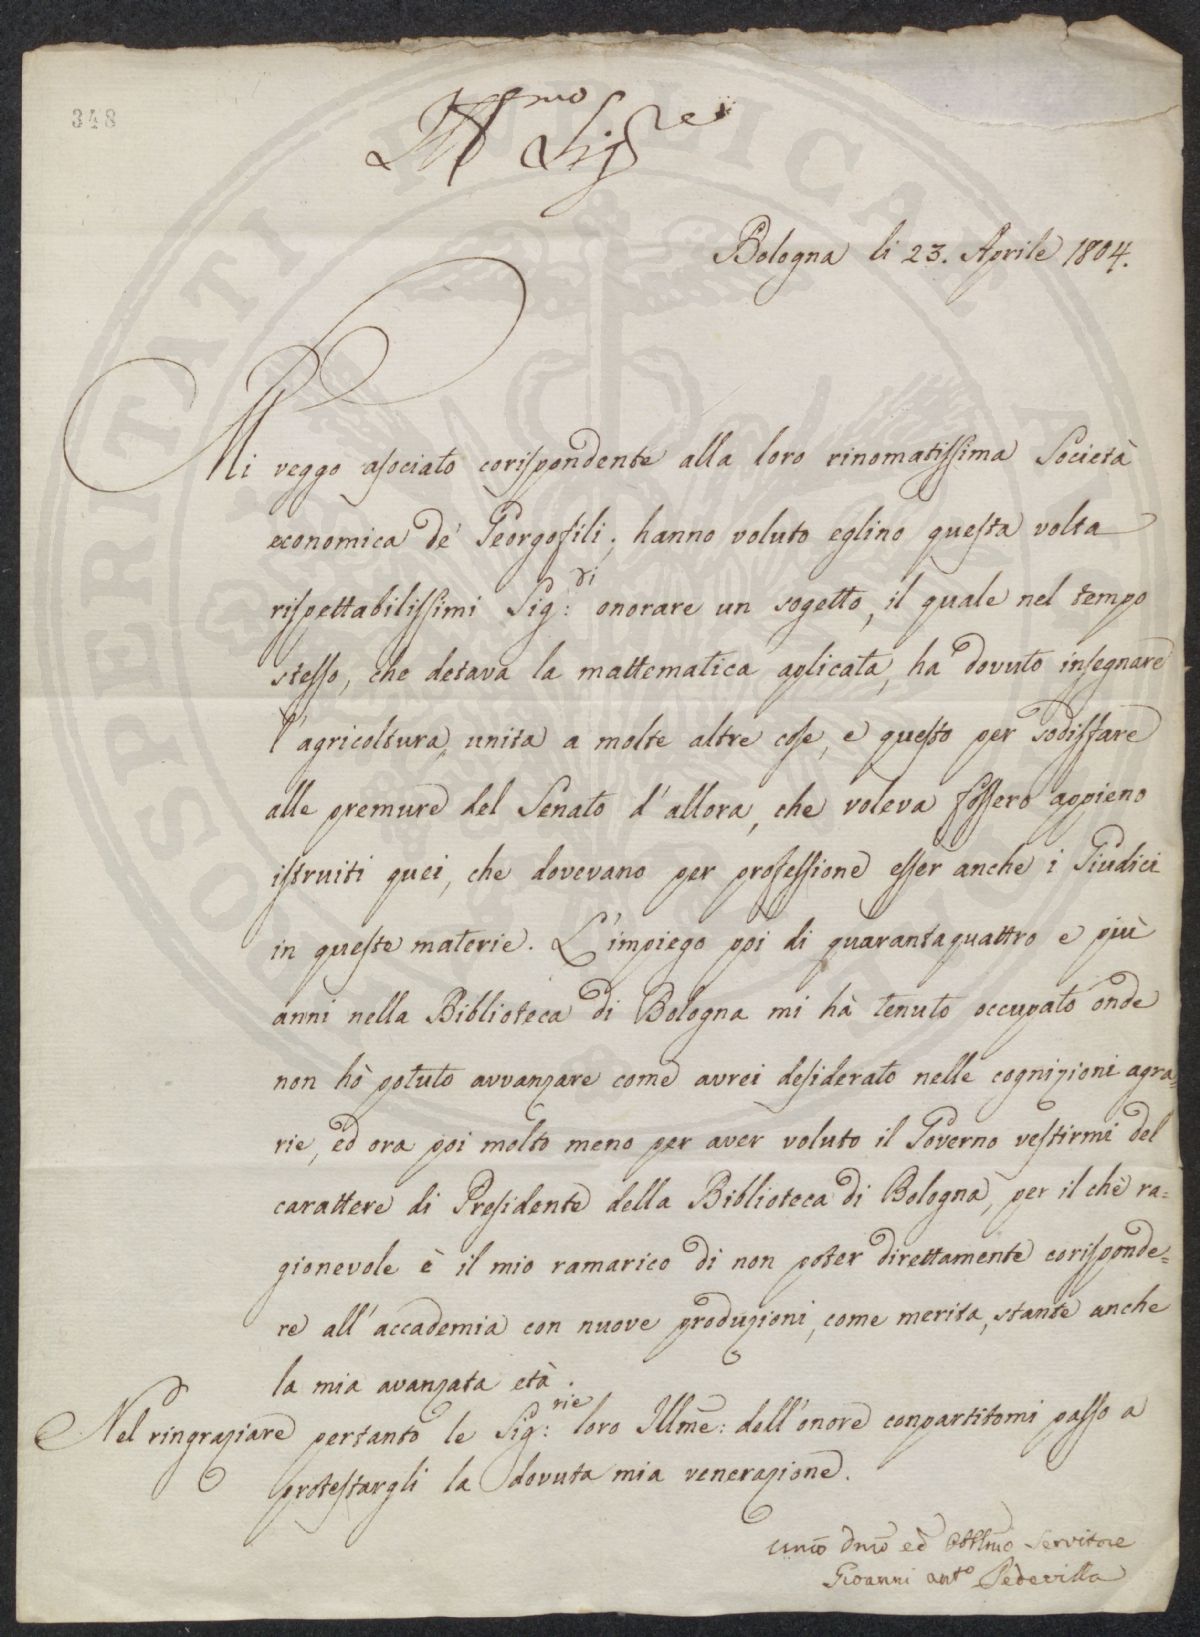 348
Ill.mo Sig.re
Bologna li 23. Aprile 1804.
Mi veggo asociato corispondente alla loro rinomatissima Società
economica de' Georgofili; hanno voluto eglino questa volta
rispettabilissimi Sig:ri onorare un sogetto, il quale nel tempo
stesso, che detava la mattematica aplicata, ha dovuto insegnare
l'agricoltura, unita a molte altre cose, e questo per sodisfare
alle premure del Senato d'allora, che voleva fossero appieno
istruiti quei, che dovevano per professione esser anche i Giudici
in queste materie. L'impiego poi di quarantaquattro e più
anni nella Biblioteca di Bologna mi hà tenuto occupato onde
non hò potuto avvanzare come avrei desiderato nelle cognizioni agra=
rie, ed ora poi molto meno per aver voluto il Governo vestirmi del
carattere di Presidente della Biblioteca di Bologna, per il chè ra=
gionevole è il mio ramarico di non poter direttamente corisponde=
re all'accademia con nuove produzioni, come merita, stante anche
la mia avanzata età.
Nel ringraziare pertanto le Sig:rie loro Illme: dell'onore conpartitomi passo a
protestargli la dovuta mia venerazione.
Umo Dmo ed Obblmo Servitore
Gioanni Anto Pedevilla
PROSPERITATI PUBLICAE AUGENDAE